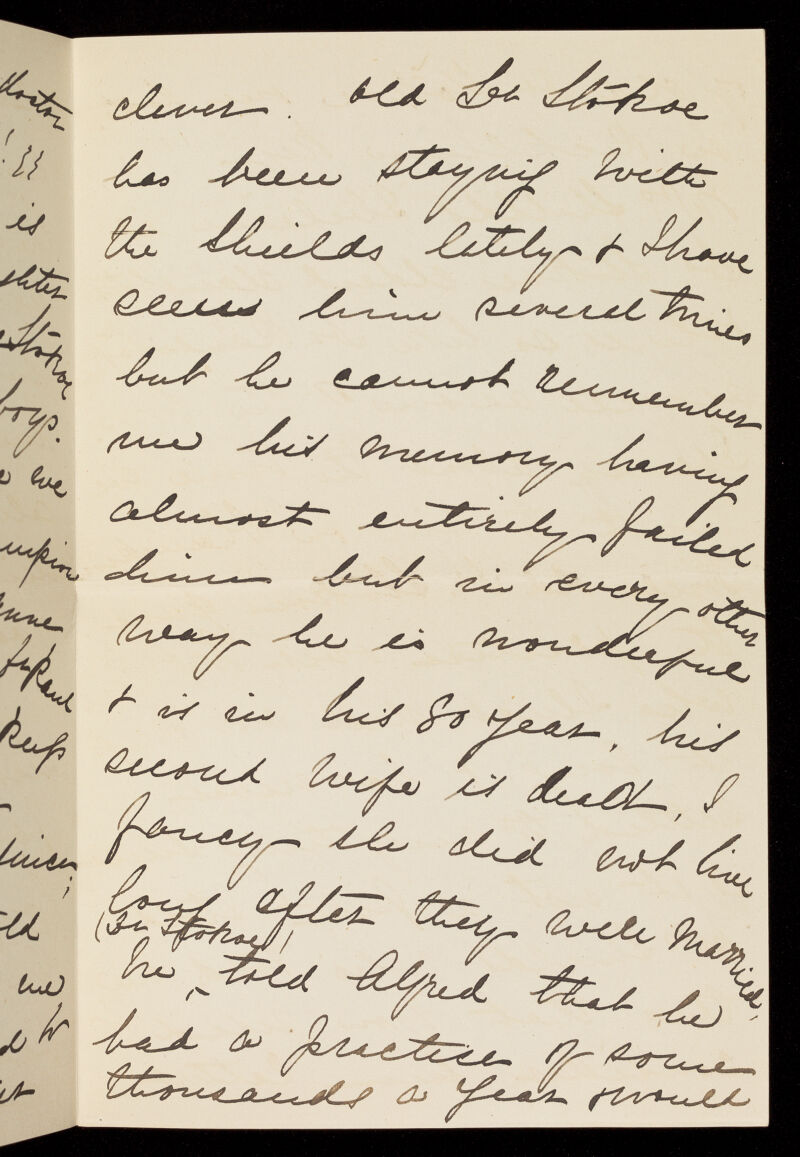 doctor
is
Stokoe
boys.
we
me
clever. Old Dr Stokoe
has been staying with
the Shields lately & I have
seen him several times
but he cannot remember
me his memory having
almost entirely failed
him but in every other
way he is wonderful
& is in his 80 year, his
second wife is dead, I
fancy she did not live
long after they were married,
(Dr Stokoe)
he ‸ told Alfred that he
had a practice of some
thousands a year & would